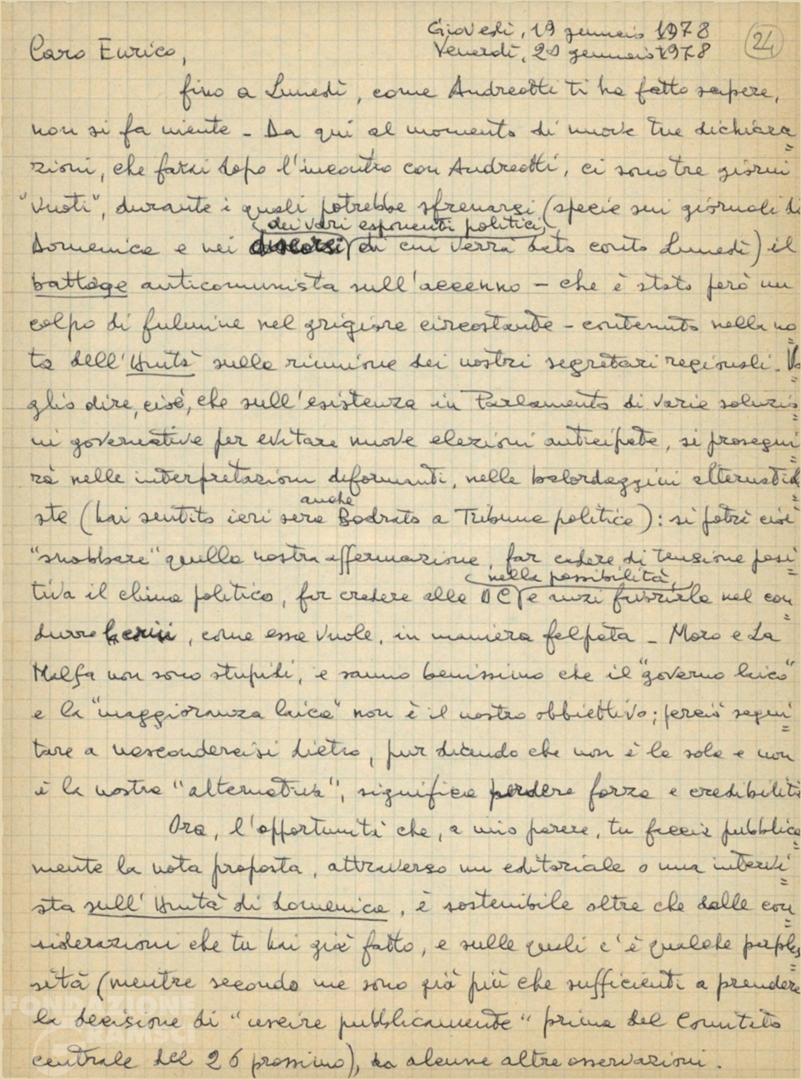 Giovedì, 19 gennaio 1978
Venerdì, 20 gennaio 1978
24
Caro Enrico,
fino a Lunedì, come Andreotti ti ha fatto sapere,
non si fa niente - Da qui al momento di nuove tue dichiara=
zioni, che farai dopo l'incontro con Andreotti, ci sono tre giorni
"vuoti", durante i quali potrebbe sfrenarsi (specie sui giornali di
dei vari esponenti politici,
Domenica e nei discorsi di cui verrà dato conto Lunedì) il
battage anticomunista sull'accenno - che è stato però un
colpo di fulmine nel grigiore circostante - contenuto nella no=
ta dell'Unità sulla riunione dei nostri segretari regionali. Vo=
glio dire, cioè, che sull'esistenza in Parlamento di varie soluzio=
ni governative per evitare nuove elezioni anticipate, si prosegui=
rà nelle interpretazioni deformanti, nelle balordaggini alternativi=
anche
ste (hai sentito ieri sera Bodrato a Tribuna politica): si potrà cioè
"snobbare" quella nostra affermazione, far cadere di tensione posi=
nella possibilità,
tiva il clima politico, far credere alla DC e anzi favorirla nel con=
durre la crisi, come essa vuole, in maniera felpata - Moro e La
Malfa non sono stupidi, e sanno benissimo che il "governo laico"
e la "maggioranza laica" non è il nostro obbiettivo; perciò segui=
tare a nascondercisi dietro, pur dicendo che non è la sola e non
è la nostra "alternativa", significa perdere forza e credibilità
Ora, l'opportunità che, a mio parere, tu faccia pubblica=
mente la nota proposta, attraverso un editoriale o una intervi=
sta sull'Unità di domenica, è sostenibile oltre che dalle con=
siderazioni che tu hai già fatto, e sulle quali c'è qualche perples=
sità (mentre secondo me sono già più che sufficienti a prendere
la decisione di "uscire pubblicamente" prima del Comitato
centrale del 26 prossimo), da alcune altre osservazioni.
FONDAZIONE
GRAMSCI